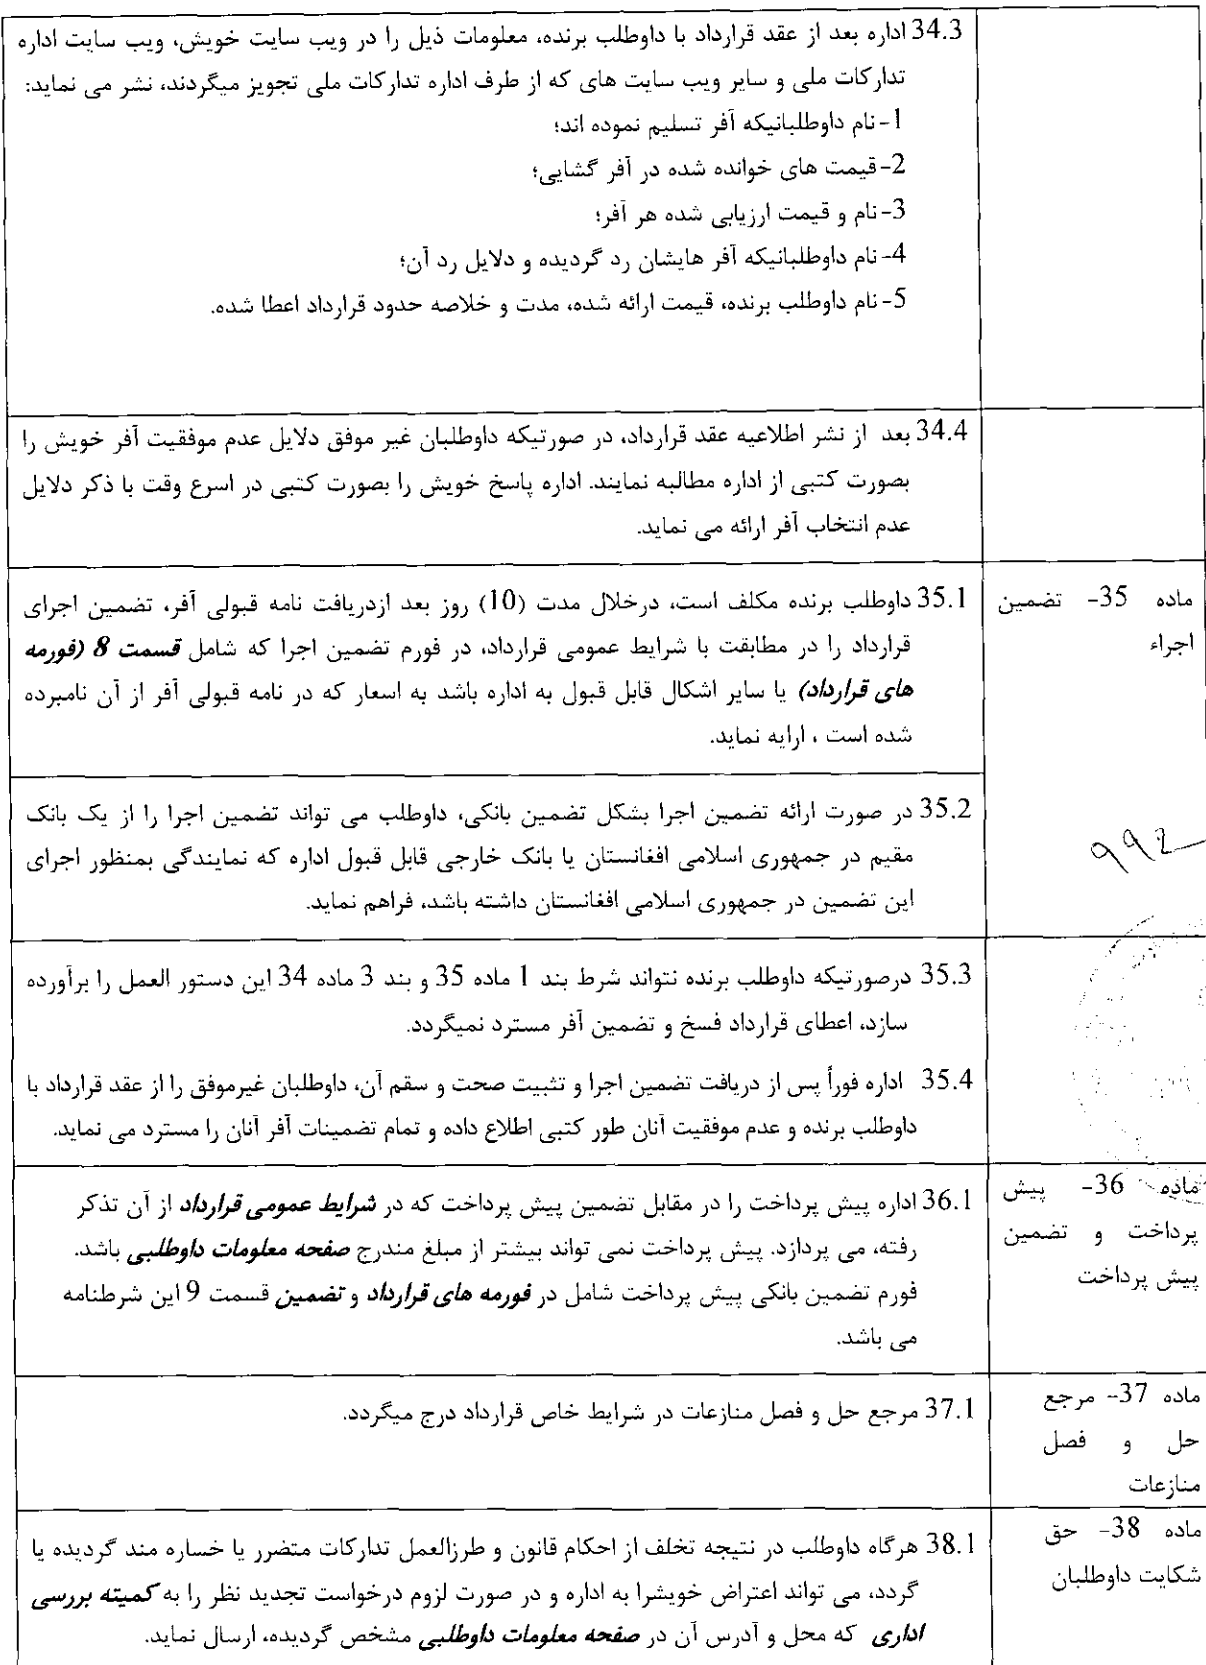 34.3 اداره بعد از عقد قرارداد با داوطلب برنده، معلومات ذیل را در ویب سایت خویش، ویب سایت اداره
تدارکات ملی و سایر ویب سایت های که از طرف اداره تدارکات ملی تجویز میگردند، نشر می نماید:
1-نام داوطلبانیکه آفر تسلیم نموده اند؛
2-قیمت های خوانده شده در آفر گشایی؛
3-نام و قیمت ارزیابی شده هر آفر؛
4-نام داوطلبانیکه آفر هایشان رد گردیده و دلایل رد آن؛
5-نام داوطلب برنده، قیمت ارائه شده، مدت و خلاصه حدود قرارداد اعطا شده.
34.4 بعد از نشر اطلاعیه عقد قرارداد، در صورتیکه داوطلبان غیر موفق دلایل عدم موفقیت آفر خویش را
بصورت کتبی از اداره مطالبه نمایند. اداره پاسخ خویش را بصورت کتبی در اسرع وقت با ذکر دلایل
عدم انتخاب آفر ارائه می نماید.
ماده 35- تضمین
اجراء
35.1 داوطلب برنده مکلف است، درخلال مدت (10) روز بعد ازدریافت نامه قبولی آفر، تضمین اجرای
قرارداد را در مطابقت با شرایط عمومی قرارداد، در فورم تضمین اجرا که شامل قسمت 8 (فورمه
های قرارداد) یا سایر اشکال قابل قبول به اداره باشد به اسعار که در نامه قبولی آفر از آن نامبرده
شده است ، ارایه نماید.
35.2 در صورت ارائه تضمین اجرا بشکل تضمین بانکی، داوطلب می تواند تضمین اجرا را از یک بانک
مقیم در جمهوری اسلامی افغانستان یا بانک خارجی قابل قبول اداره که نمایندگی بمنظور اجرای
این تضمین در جمهوری اسلامی افغانستان داشته باشد، فراهم نماید.
۹۹۲
35.3 درصورتیکه داوطلب برنده نتواند شرط بند 1 ماده 35 و بند 3 ماده 34 این دستور العمل را برآورده
سازد، اعطای قرارداد فسخ و تضمین آفر مسترد نمیگردد.
35.4 اداره فوراً پس از دریافت تضمین اجرا و تثبیت صحت و سقم آن، داوطلبان غیرموفق را از عقد قرارداد با
داوطلب برنده و عدم موفقیت آنان طور کتبی اطلاع داده و تمام تضمینات آفر آنان را مسترد می نماید.
ماده 36- پیش
پرداخت و تضمین
پیش پرداخت
36.1 اداره پیش پرداخت را در مقابل تضمین پیش پرداخت که در شرایط عمومی قرارداد از آن تذکر
رفته، می پردازد. پیش پرداخت نمی تواند بیشتر از مبلغ مندرج صفحه معلومات داوطلبی باشد.
فورم تضمین بانکی پیش پرداخت شامل در فورمه های قرارداد و تضمین قسمت 9 این شرطنامه
می باشد.
ماده 37- مرجع
حل و فصل
منازعات
37.1 مرجع حل و فصل منازعات در شرایط خاص قرارداد درج میگردد.
ماده 38- حق
شکایت داوطلبان
38.1 هرگاه داوطلب در نتیجه تخلف از احکام قانون و طرزالعمل تدارکات متضرر یا خساره مند گردیده یا
گردد، می تواند اعتراض خویشرا به اداره و در صورت لزوم درخواست تجدید نظر را به کمیته بررسی
اداری که محل و آدرس آن در صفحه معلومات داوطلبی مشخص گردیده، ارسال نماید.